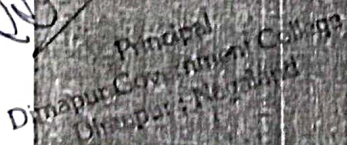 Principal
Dimapur Government College
Dimapur : Nagaland